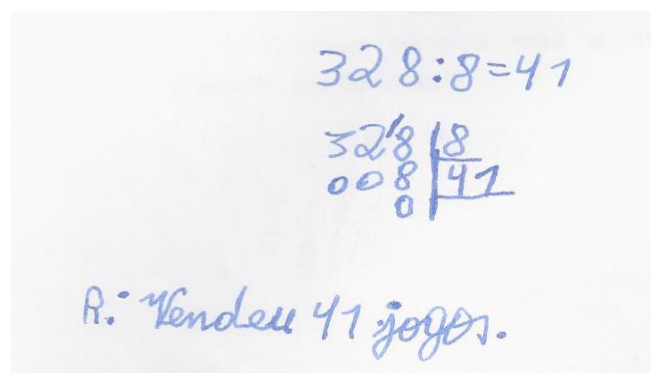 328:8=41
32'8 8
008 41
0
R: Vendeu 41 jogos.